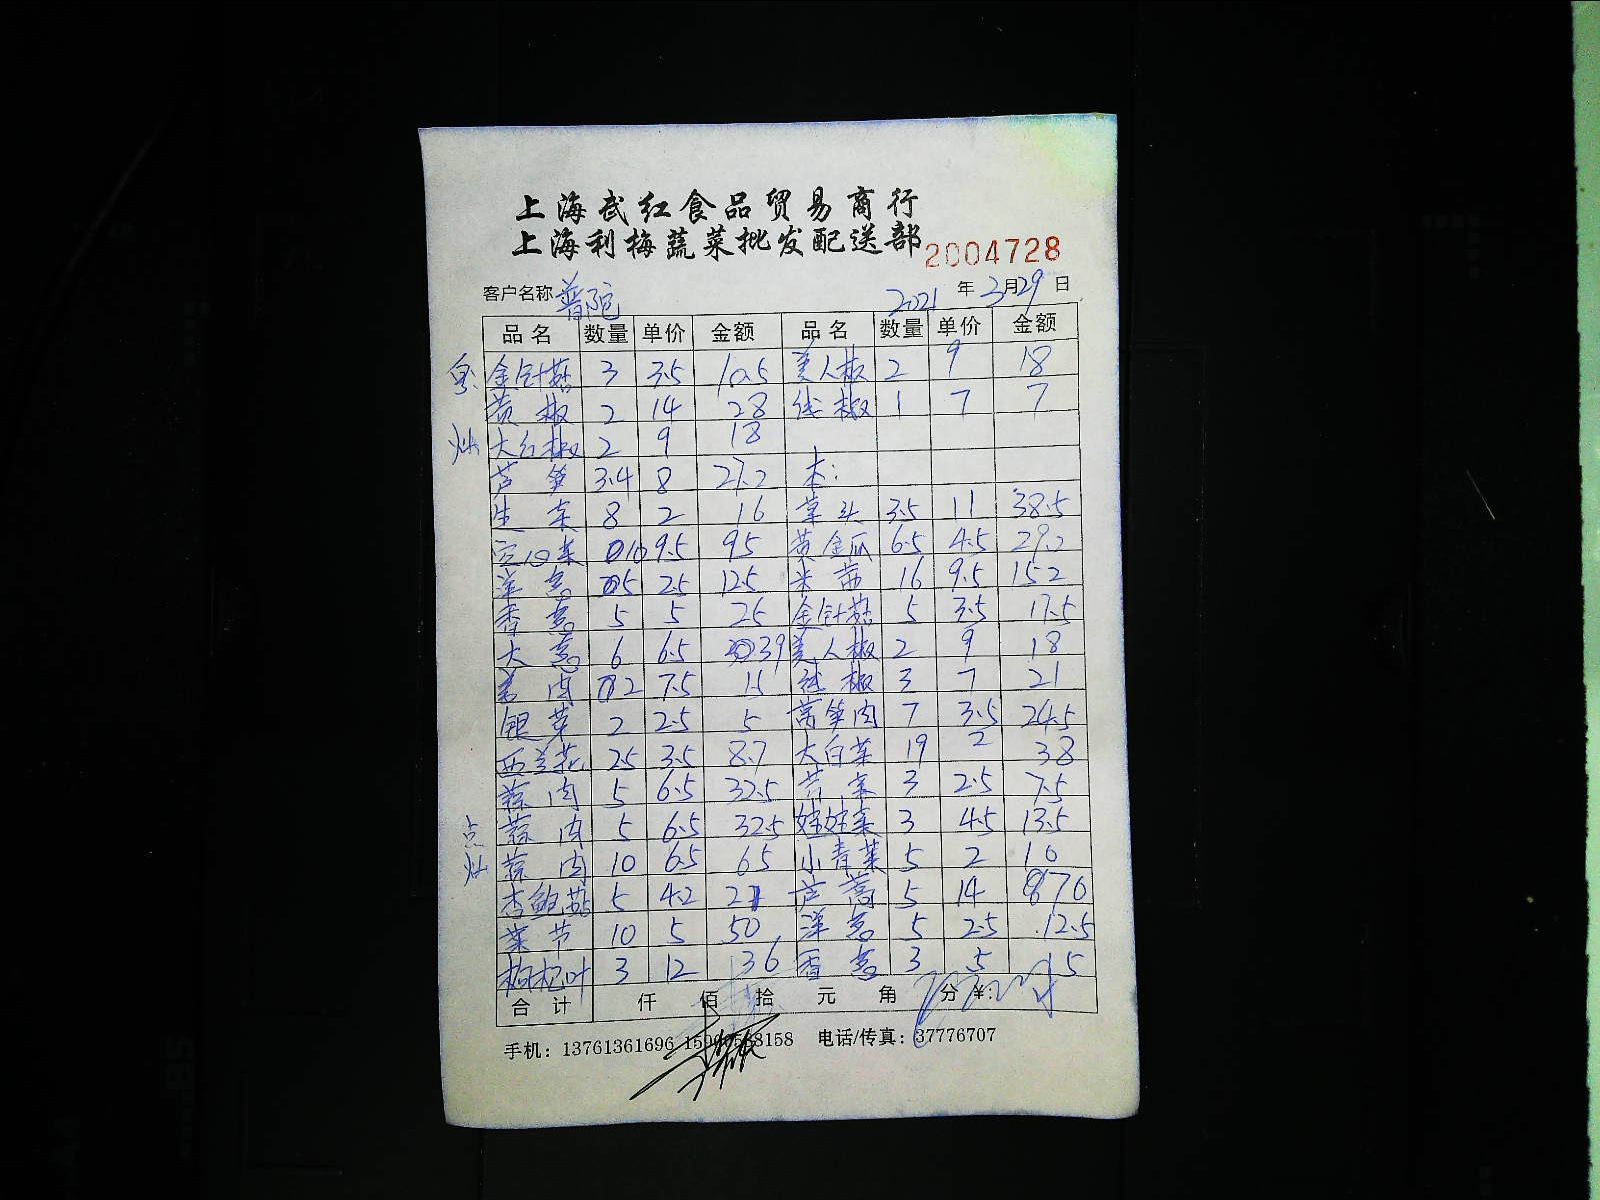 上海武红食品贸易商行
上海利梅蔬菜批发配送部 2004728
客户名称 普陀 2021 年 3 月 29 日
品名 数量 单价 金额 品名 数量 单价 金额
金针菇 3 3.5 10.5 美人椒 2 9 18
黄椒 2 14 28 线椒 1 7 7
大红椒 2 9 18
芦笋 3.4 8 27.2 木:
生菜 8 2 16 菜头 3.5 11 38.5
空心菜 10 9.5 95 黄金瓜 6.5 4.5 29.2
洋葱 5 2.5 12.5 米苋 16 9.5 152
香葱 5 5 25 金针菇 5 3.5 17.5
大葱 6 6.5 39 美人椒 2 9 18
姜肉 2 7.5 15 线椒 3 7 21
银芽 2 2.5 5 莴笋肉 7 3.5 24.5
西兰花 2.5 3.5 8.7 大白菜 19 2 38
蒜肉 5 6.5 32.5 3 2.5 7.5
点 蒜肉 5 6.5 32.5 娃娃菜 3 4.5 13.5
灶 蒜肉 10 6.5 65 小青菜 5 2 10
杏鲍菇 5 4.2 21 芦蒿 5 14 70
菜节 10 5 50 洋葱 5 2.5 12.5
枸杞叶 3 12 36 香葱 3 5 15
合计 仟 佰 拾 元 角 分 ¥:
手机: 13761361696 电话/传真: 37776707